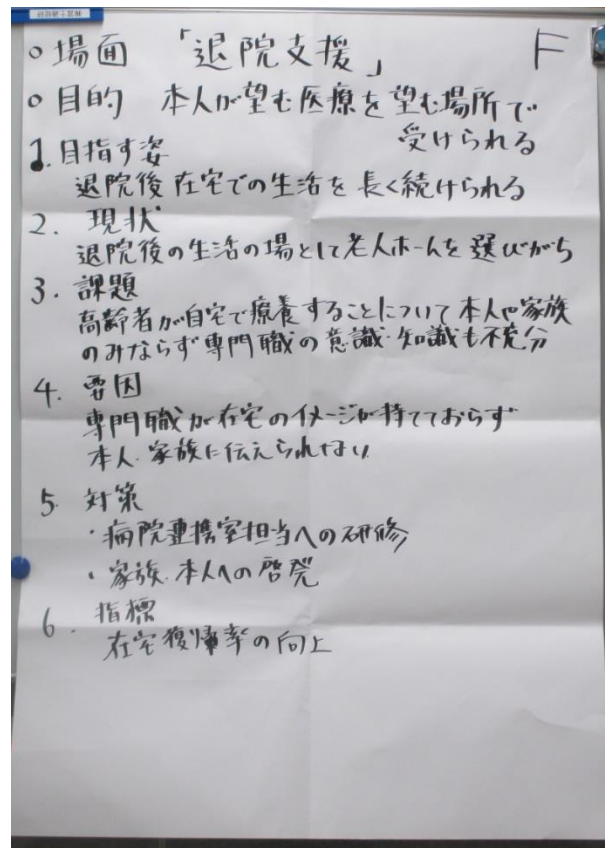 ○場面 「退院支援」 F
○目的 本人が望む医療を望む場所で
受けられる
1.目指す姿
退院後在宅での生活を長く続けられる
2. 現状
退院後の生活の場として老人ホームを選びがち
3. 課題
高齢者が自宅で療養することについて本人や家族
のみならず専門職の意識・知識も不充分
4. 要因
専門職が在宅のイメージが持てておらず
本人・家族に伝えられない
5. 対策
・病院連携室担当への研修
・家族・本人への啓発
6. 指標
在宅復帰率の向上